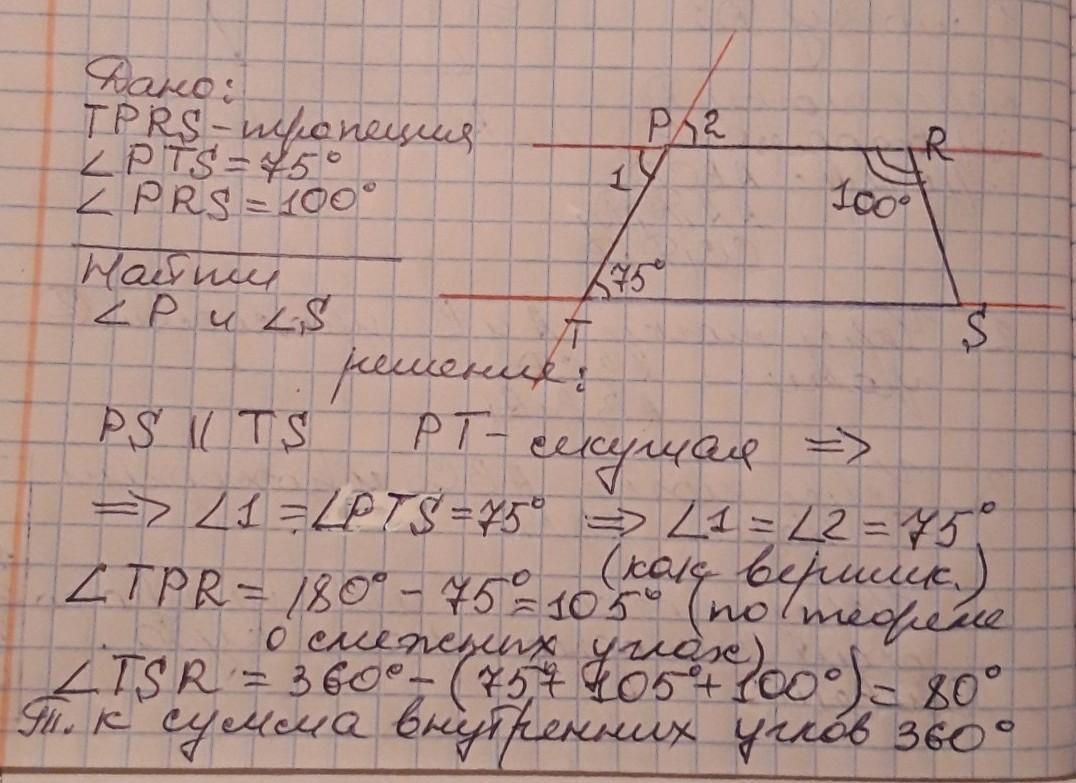 Дано:
TPRS - трапеция
∠PTS = 75°
∠PRS = 100°
Найти
∠P и ∠S
P 2 R
1 100°
75°
T S
решение:
PS || TS PT - секущая =>
=> ∠1 = ∠PTS = 75° => ∠1 = ∠2 = 75°
(как вертик.)
∠TPR = 180° - 75° = 105° (по теореме
о смежных углах)
∠TSR = 360° - (75° + 105° + 100°) = 80°
Т. к сумма внутренних углов 360°